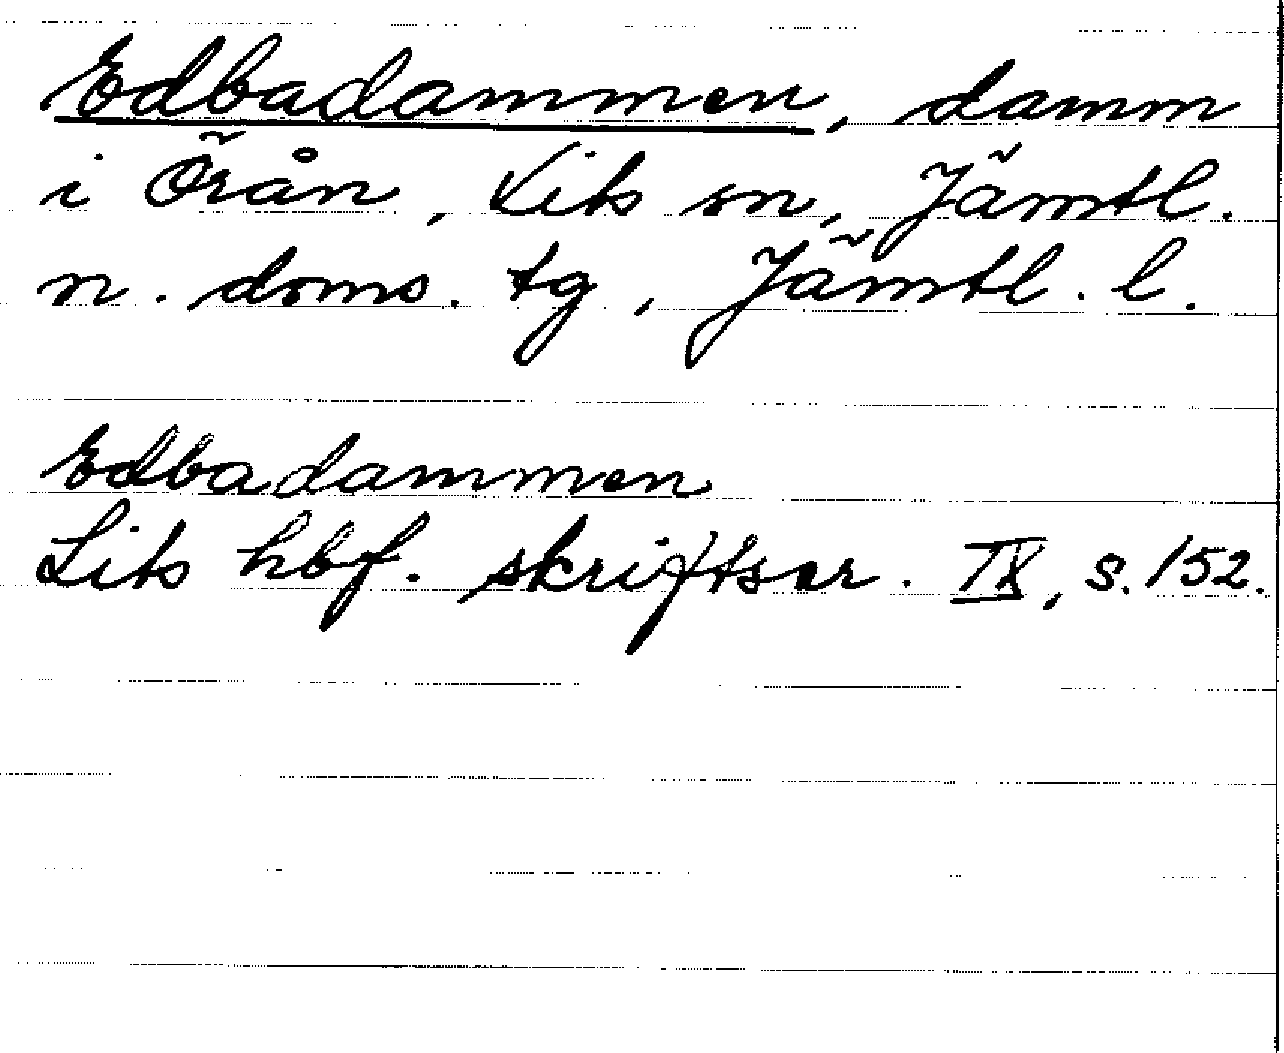 Edbadammen, damm
i Örån, Lits sn, Jämtl.
n. doms. tg, Jämtl. l.
Edbadammen
Lits hbf. skriftser. IX, s. 152.